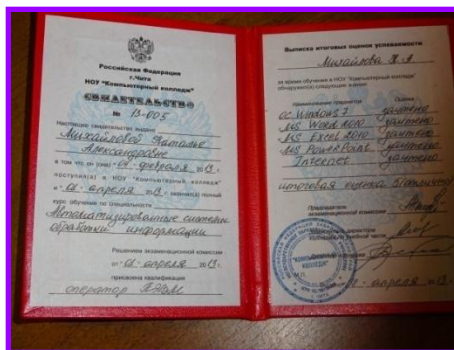 Российская Федерация
г.Чита
НОУ "Компьютерный колледж"
СВИДЕТЕЛЬСТВО
№ 13-005
Настоящее свидетельство выдано
Михайловой Наталье
Александровне
в том что он (она) "01" февраля 2013 г.
поступил(а) в НОУ "Компьютерный колледж"
и "01" апреля 2013 г. окончил(а) полный
курс обучение по специальности
Автоматизированные системы
обработки информации
Решением экзаменационной комиссии
от "01" апреля 2013 г.
присвоена квалификация
оператор ПЭВМ
Выписка итоговых оценок успеваемости
Михайлова Н.А
за время обучения в НОУ "Компьютерный колледж"
обнаружил(а) следующие знания
наименование предметов Оценка
ОС Windows 7 зачтено
MS Word 2010 зачтено
MS Excel 2010 зачтено
MS PowerPoint зачтено
Internet зачтено
итоговая оценка 5(отлично)
Председатель
экзаменационной комиссии
"КОМПЬЮТЕРНЫЙ
КОЛЛЕДЖ"
апреля 2013 г.